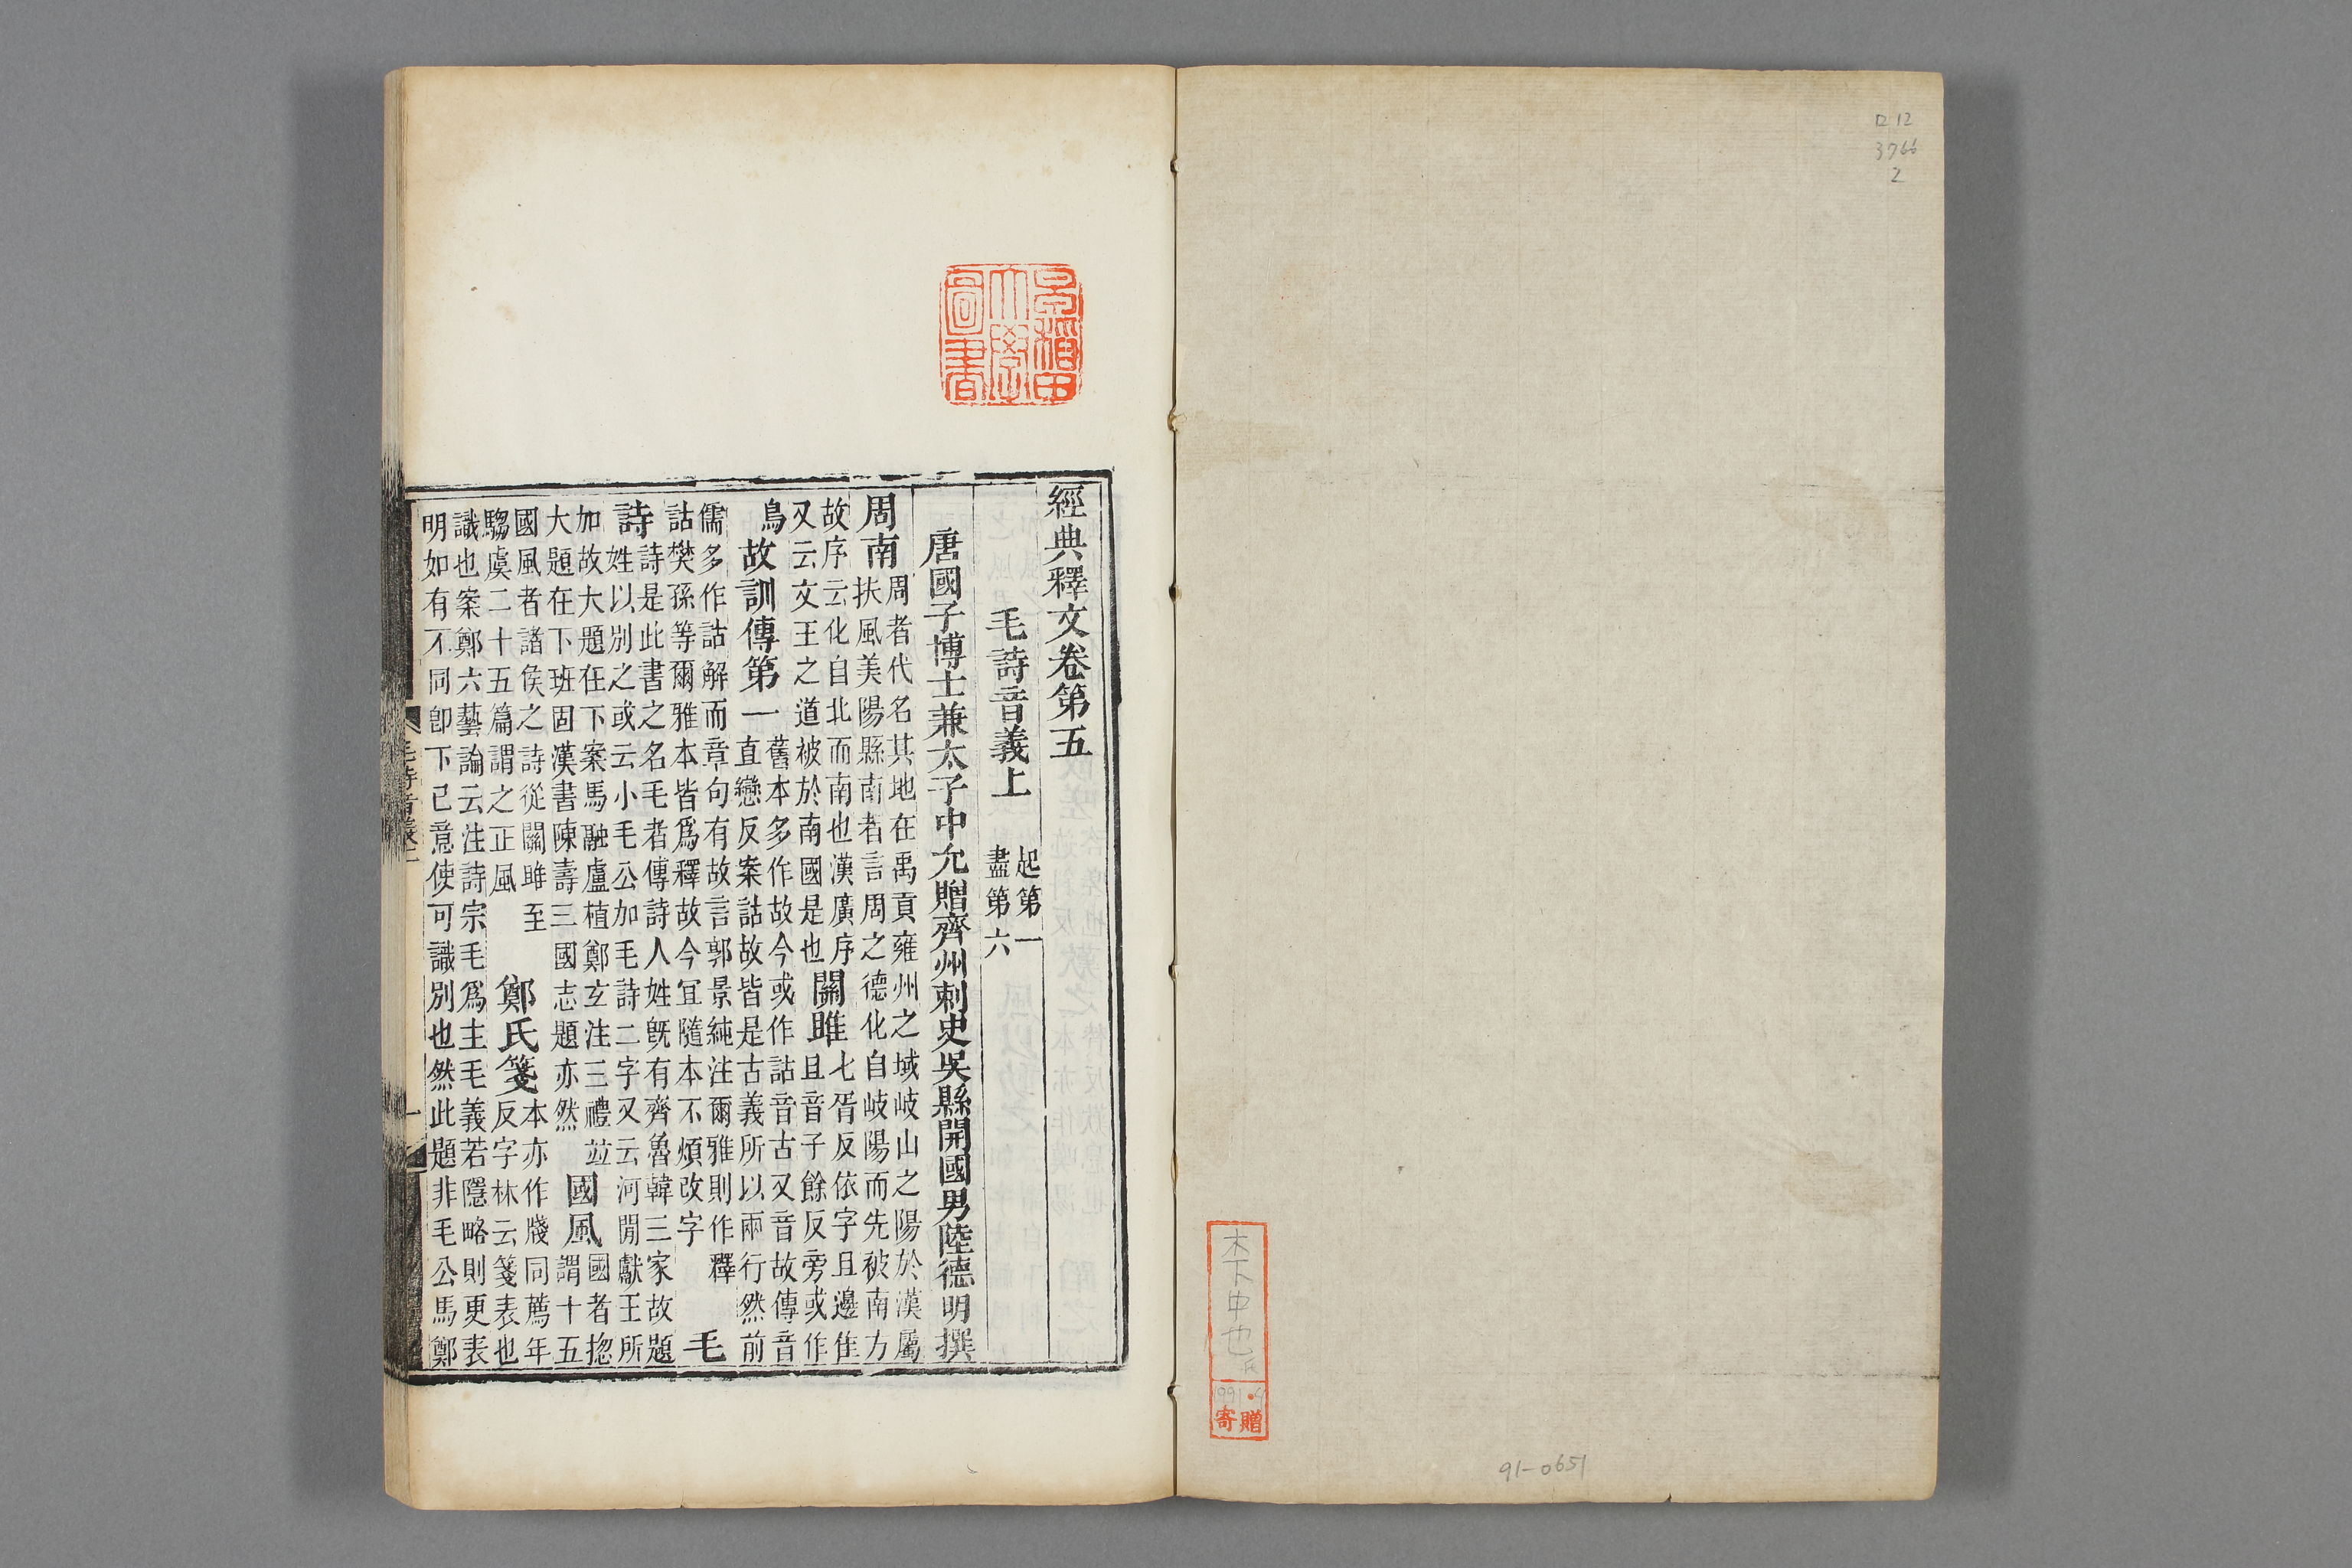 ロ12
3766
2
木下申也氏
1991.
寄贈
91-0651
早稲田大學圖書
經典釋文卷第五
毛詩音義上
起第一
盡第六
唐國子博士兼太子中允贈齊州刺史吳縣開國男陸德明撰
周南
周者代名其地在禹貢雍州之域岐山之陽於漢屬
扶風美陽縣南南者言周之德化自岐陽而先被南方
故序云化自北而南也漢廣序
又云文王之道被於南國是也
關雎
七胥反依字且邊隹
且音子餘反旁或作
鳥
故訓傳第一
舊本多作故今或作詁音古又音故傳音
直戀反案詁故皆是古義所以兩行然前
儒多作詁解而章句有故言郭景純注爾雅則作釋
詁樊孫等爾雅本皆爲釋故今宜隨本不煩改字
毛
詩
詩是此書之名毛者傳詩人姓旣有齊魯韓三家故題
姓以別之或云小毛公加毛詩二字又云河閒獻王所
加故大題在下案馬融盧植鄭玄注三禮並
大題在下班固漢書陳壽三國志題亦然
國風
國者揔
謂十五
國風者諸侯之詩從關雎至
騶虞二十五篇謂之正風
鄭氏箋
本亦作牋同薦年
反字林云箋表也
識也案鄭六藝論云注詩宗毛爲主毛義若隱略則更表
明如有不同卽下己意使可識別也然此題非毛公馬鄭
毛詩音義上
一